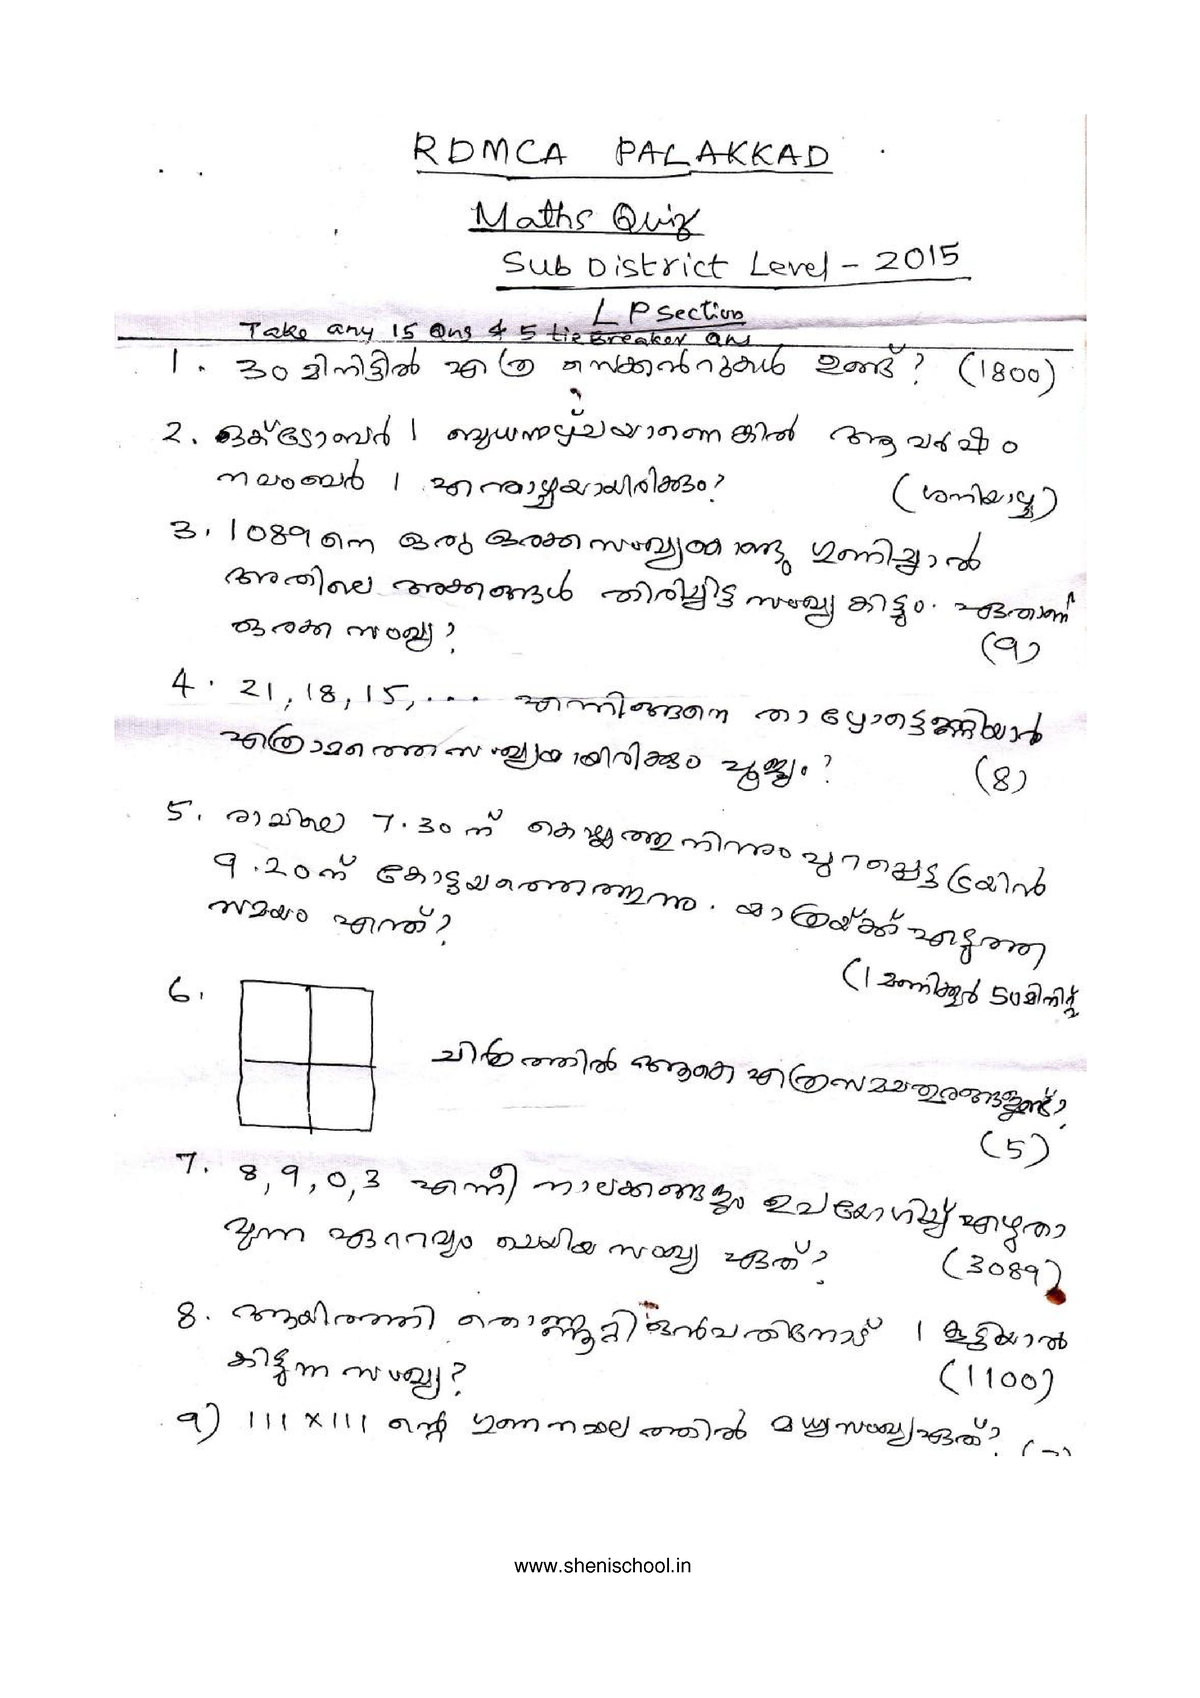 RDMCA PALAKKAD
Maths Quiz
Sub District Level - 2015
LP Section
Take any 15 Qns & 5 tie Breaker Qns
1. 30 മിനിട്ടിൽ എത്ര സെക്കൻറുകൾ ഉണ്ട്? (1800)
2. ഒക്ടോബർ 1 ബുധനാഴ്ചയാണെങ്കിൽ ആ വർഷം
നവംബർ 1 എന്താഴ്ചയായിരിക്കും? (ശനിയാഴ്ച)
3. 1089 നെ ഒരു ഒരക്ക സംഖ്യകൊണ്ടു ഗുണിച്ചാൽ
അതിലെ അക്കങ്ങൾ തിരിച്ചിട്ട സംഖ്യ കിട്ടും. ഏതാണ്
ഒരക്ക സംഖ്യ? (9)
4. 21, 18, 15, ... എന്നിങ്ങനെ താഴോട്ടെണ്ണിയാൽ
എത്രാമത്തെ സംഖ്യയായിരിക്കും പൂജ്യം? (8)
5. രാവിലെ 7.30 ന് നിന്നും പുറപ്പെട്ട ട്രയിൻ
9.20ന് കോട്ടയത്തെത്തുന്നു. യാത്രയ്ക്ക് എടുത്ത
സമയം എന്ത്?
(1 മണിക്കൂർ 50 മിനിറ്റ്
6.
ചിത്രത്തിൽ ആകെ എത്ര സമചതുരങ്ങളുണ്ട്?
(5)
7. 8, 9, 0, 3 എന്നീ നാലക്കങ്ങളും ഉപയോഗിച്ച് എഴുതാ
വുന്ന ഏററവും ചെറിയ സംഖ്യ ഏത്? (3089)
8. ആയിരത്തി തൊണ്ണൂറ്റി ഒൻപതിനോട് 1 കൂട്ടിയാൽ
കിട്ടുന്ന സംഖ്യ? (1100)
9) 111 x 111 ന്റെ ഗുണനഫലത്തിൽ മധ്യസംഖ്യ ഏത്?
www.shenischool.in